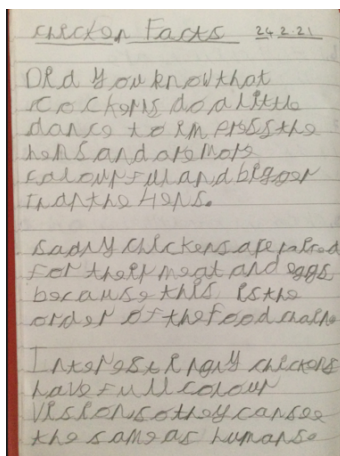 chicken Facts 24.2.21
Did you know that
cockerls do a little
dance to impress the
hens and are more
colourful and bigger
than the Hens.
sadly chickens are raired
for their meat and eggs
because this is the
order of the food chaine
Interestingly chickens
have full colour
vision so they can see
the same as humans.